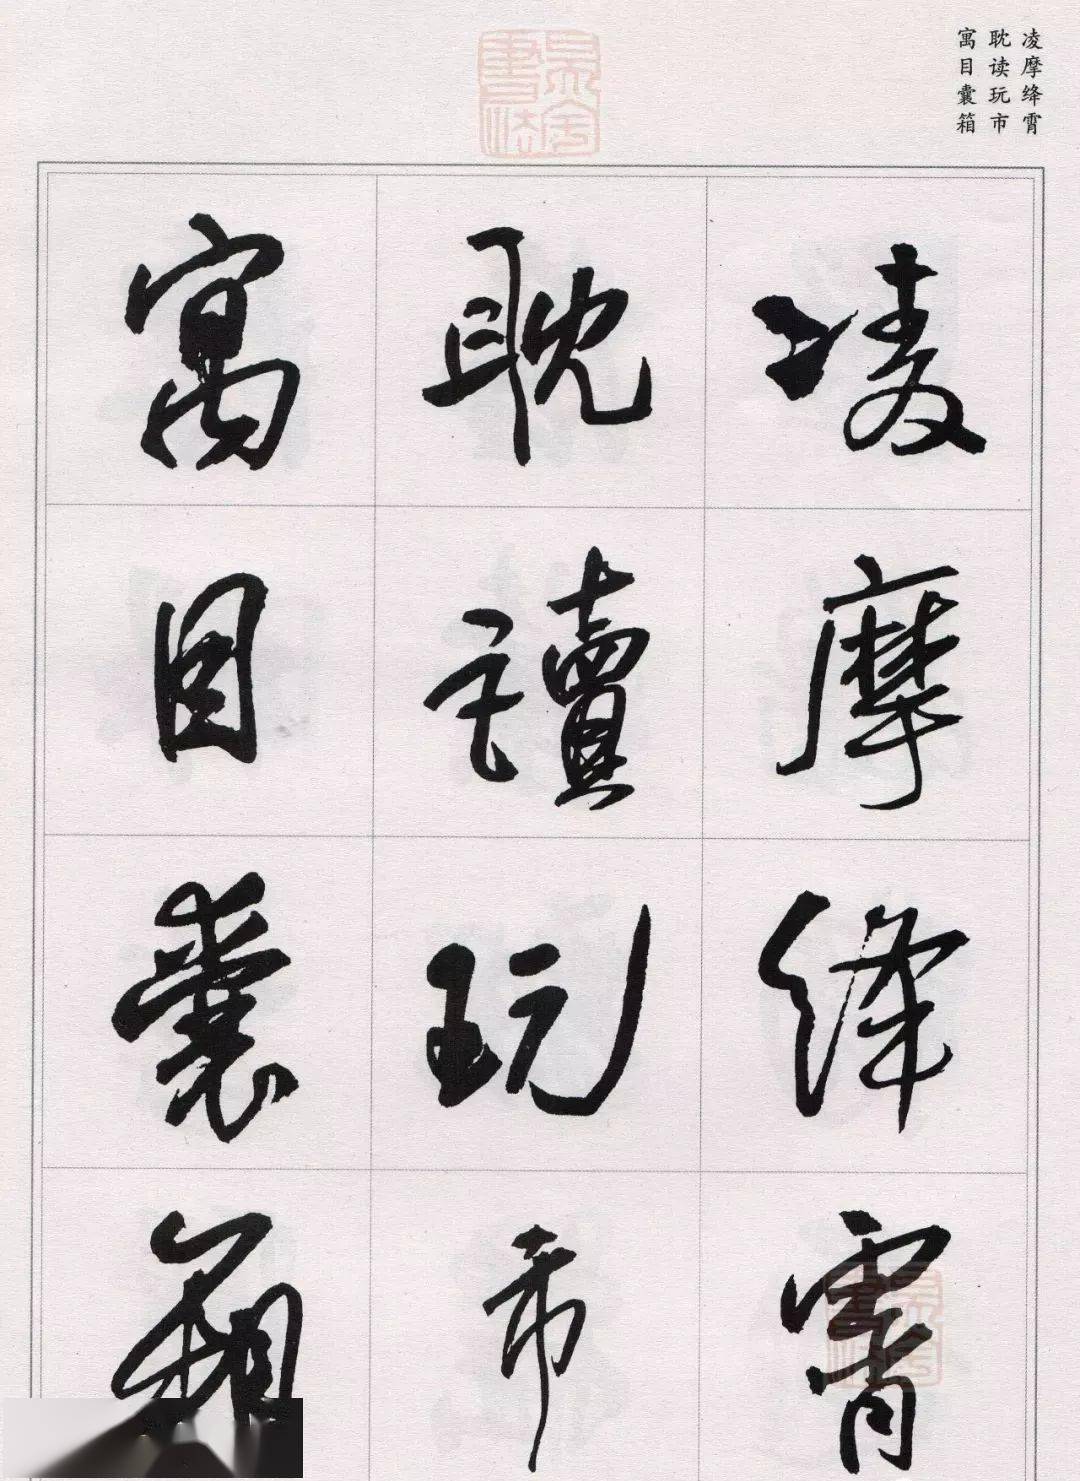 凌摩绛霄
耽读玩市
寓目囊箱
凌摩絳霄
耽讀玩市
寓目囊箱
吴金書法